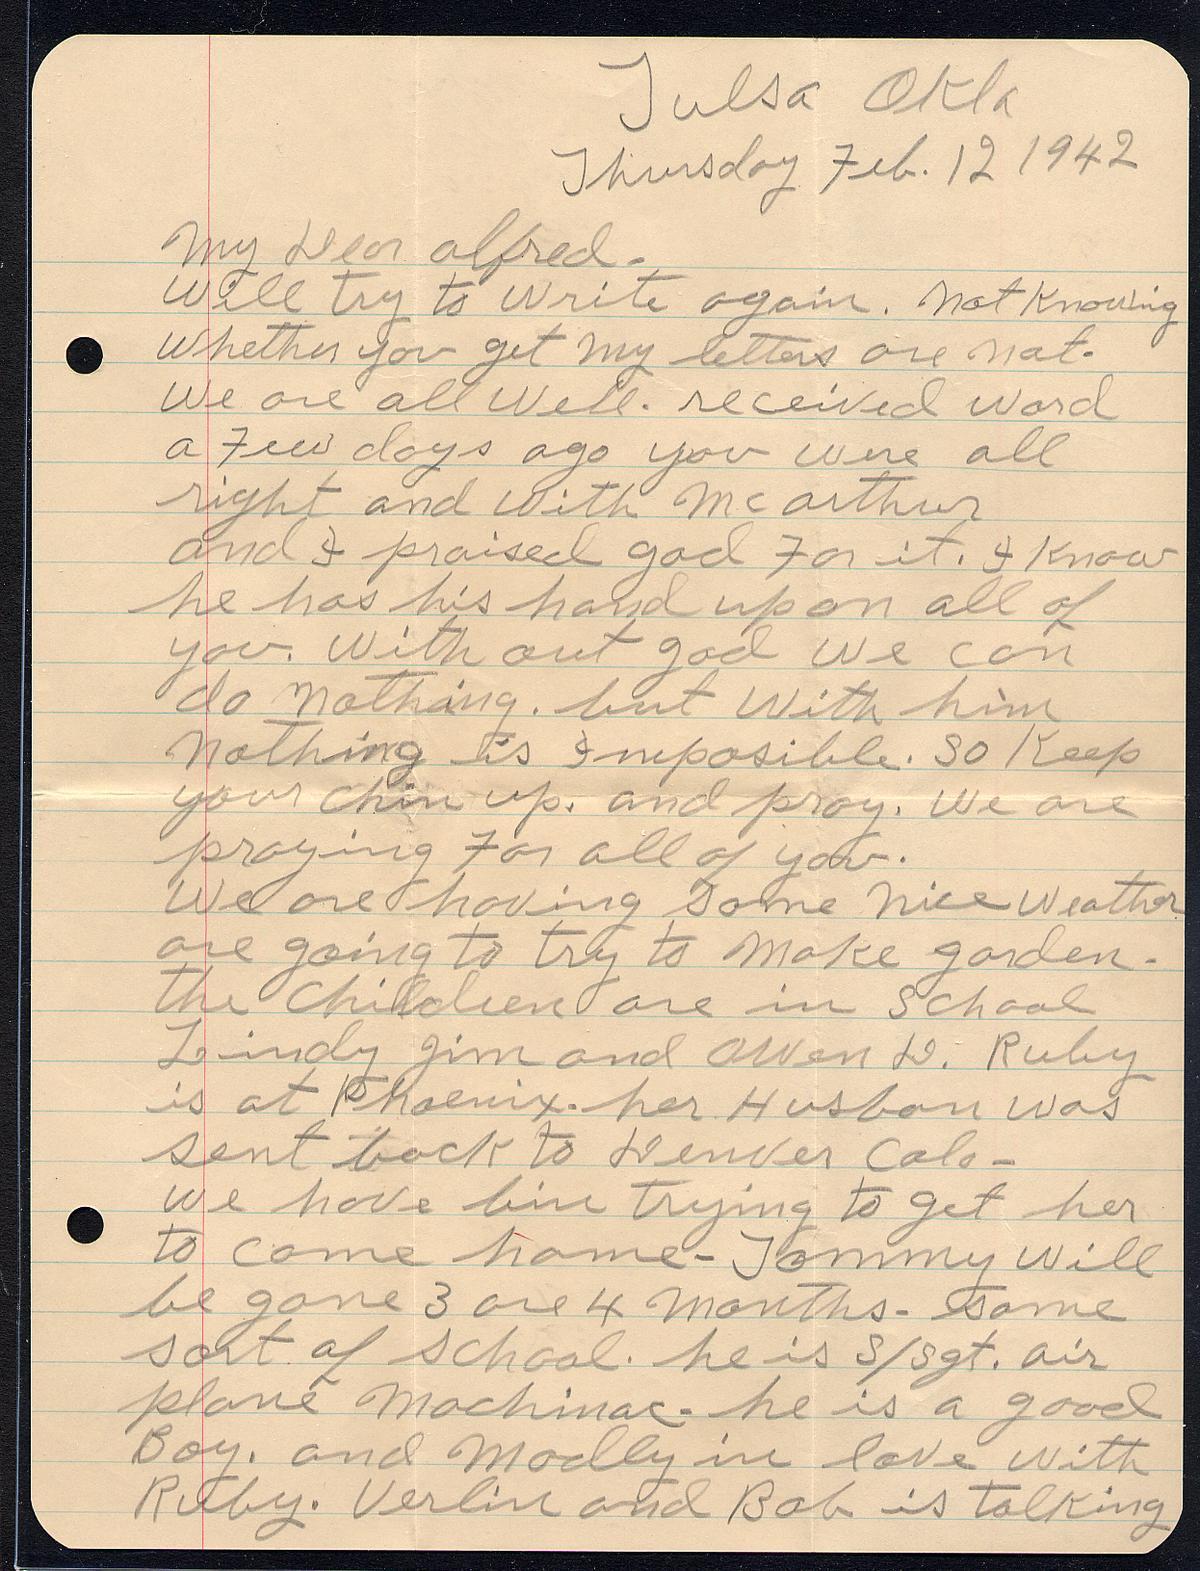 Tulsa Okla
Thursday Feb. 12 1942
My Dear alfred.
Will try to write again. Not Knowing
whether you get My letters are not.
We are all well. received word
a Few days ago you were all
right and with Mcarthur
and I praised god For it. I Know
he has his hand upon all of
you. With out god we can
do Nothing. but With him
Nothing is Imposible. So Keep
your chin up. and pray. We are
praying For all of you.
We are having Some Nice Weather
are going to try to Make garden.
the children are in School
Lindy Jim and Owen D. Ruby
is at Phoenix. her Husban was
sent back to Denver Colo-
we have bin trying to get her
to come home- Tommy Will
be gone 3 are 4 Months- some
sort of School. he is S/Sgt. air
plane Machinac- he is a good
Boy. and Madly in love with
Ruby. Verlin and Bob is talking